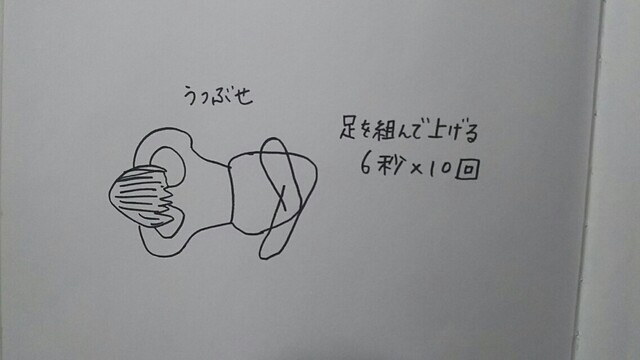 うつぶせ
足を組んで上げる
6秒×10回